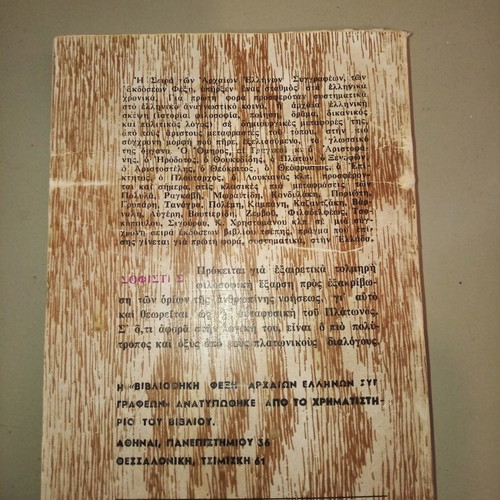 Ἡ Σειρά τῶν Ἀρχαίων Ἑλλήνων Συγγραφέων, τῶν
ἐκδόσεων Φέξη, ὑπῆρξεν ἕνας σταθμὸς στὰ ἑλληνικὰ
χρονικά. Γιὰ πρώτη φορὰ προσφερόταν συστηματικὰ
στὸ ἑλληνικὸ ἀναγνωστικὸ κοινό, ἡ ἀρχαία ἑλληνικὴ
σκέψη (ἱστορία, φιλοσοφία, ποίηση, δρᾶμα, δικανικὸς
καὶ πολιτικὸς λόγος) σὲ δημιουργικὲς μεταφορές της,
ἀπὸ τοὺς ἄριστους μεταφραστὲς τοῦ τόπου, στὴν πιὸ
σύγχρονη μορφὴ ποὺ πῆρε, ἐξελισσόμενο, τὸ γλωσσικό
της ὄργανο. Ὁ Ὅμηρος, οἱ Τραγικοὶ κι ὁ Ἀριστοφά-
νης, ὁ Ἡρόδοτος, ὁ Θουκυδίδης, ὁ Πλάτων, ὁ Ξενοφῶν
ὁ Ἀριστοτέλης, ὁ Θεόκριτος, ὁ Θεόφραστος, ὁ Ἐπί-
κτητος, ὁ Πλούταρχος, ὁ Λουκιανὸς κλπ. προσφέρον-
ται καὶ σήμερα, στὶς κλασικὲς πιὰ μεταφράσεις τῶν
Πολυλᾶ, Ραγκαβῆ, Μωραϊτίδη, Κονδυλάκη, Ποριώτη,
Γρυπάρη, Τανάγρα, Πολέμη, Καμπάνη, Καζαντζάκη, Βάρ-
ναλη, Αὐγέρη, Βουτιερίδη, Ζερβοῦ, Φιλαδελφέως, Τσο-
κοπούλου, Σιγούρου, Κ. Χρηστομάνου κλπ. σὲ μιὰ σύγ-
χρονη σειρὰ ἐκδόσεων βιβλίου τσέπης, πράγμα ποὺ ἐπί-
σης γίνεται γιὰ πρώτη φορά, συστηματικά, στὴν Ἑλλάδα.
ΣΟΦΙΣΤΗΣ Πρόκειται γιὰ ἐξαιρετικὰ τολμηρὴ
φιλοσοφικὴ ἔξαρση πρὸς ἐξακρίβω-
ση τῶν ὁρίων τῆς ἀνθρωπίνης νοήσεως, γι' αὐτὸ
καὶ θεωρεῖται ὡς ἡ μεταφυσικὴ τοῦ Πλάτωνος.
Σ' ὅ,τι ἀφορᾶ στὴν λογική του, εἶναι ὁ πιὸ πολύ-
τροπος καὶ ὀξὺς ἀπὸ τοὺς πλατωνικοὺς διαλόγους.
Η «ΒΙΒΛΙΟΘΗΚΗ ΦΕΞΗ ΑΡΧΑΙΩΝ ΕΛΛΗΝΩΝ ΣΥΓ
ΓΡΑΦΕΩΝ» ΑΝΑΤΥΠΩΘΗΚΕ ΑΠΟ ΤΟ ΧΡΗΜΑΤΙΣΤΗ-
ΡΙΟ ΤΟΥ ΒΙΒΛΙΟΥ.
ΑΘΗΝΑΙ, ΠΑΝΕΠΙΣΤΗΜΙΟΥ 56
ΘΕΣΣΑΛΟΝΙΚΗ, ΤΣΙΜΙΣΚΗ 61